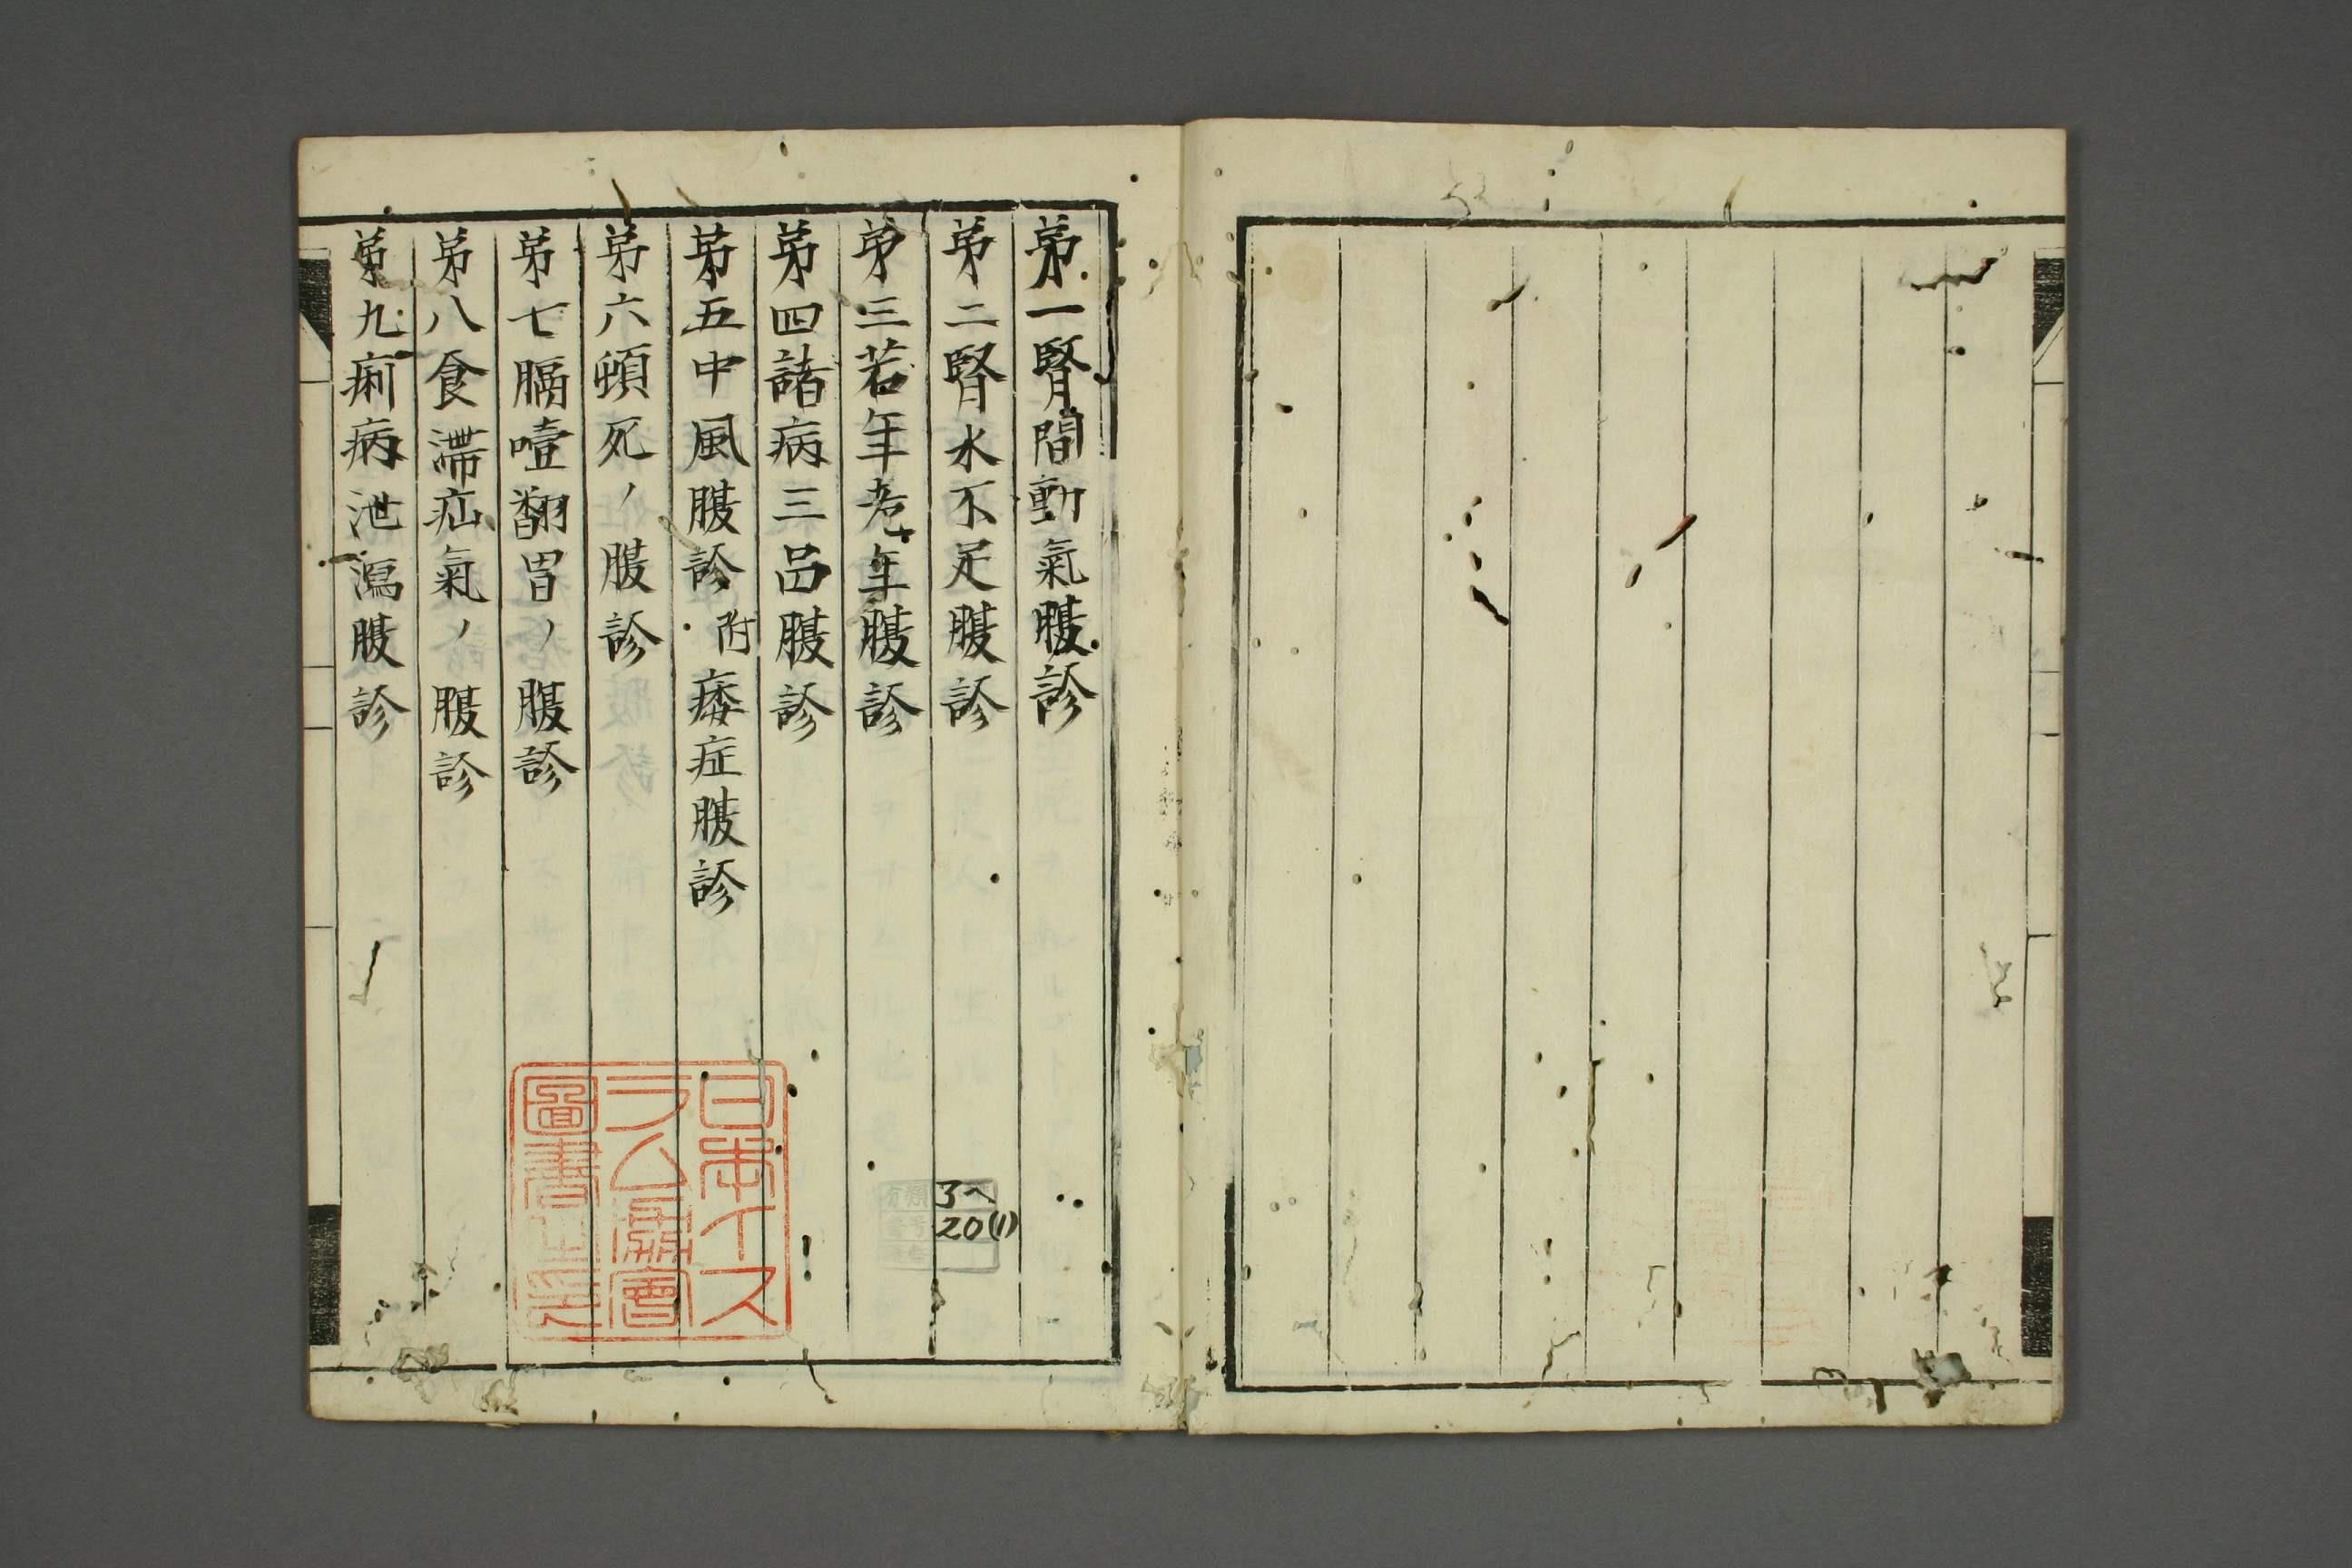 第一腎間動氣腹診
第二腎水不足腹診
第三若年老年腹診
第四諸病三品腹診
第五中風腹診 附 痿症腹診
第六頓死ノ腹診
第七膈噎翻胃ノ腹診
第八食滞疝氣ノ腹診
第九痢病泄瀉腹診
日本イス
ラム協會
圖書之印
3へ
20(1)